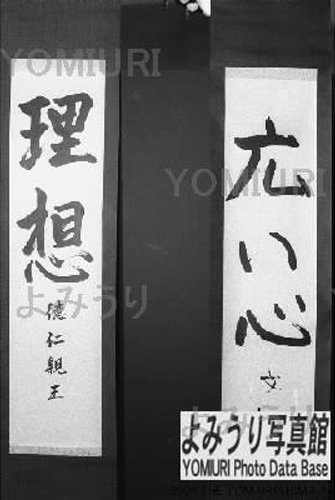 理想
徳仁親王
広い心
文
YOMIURI
YOMIURI
よみうり
よみうり写真館
YOMIURI Photo Data Base